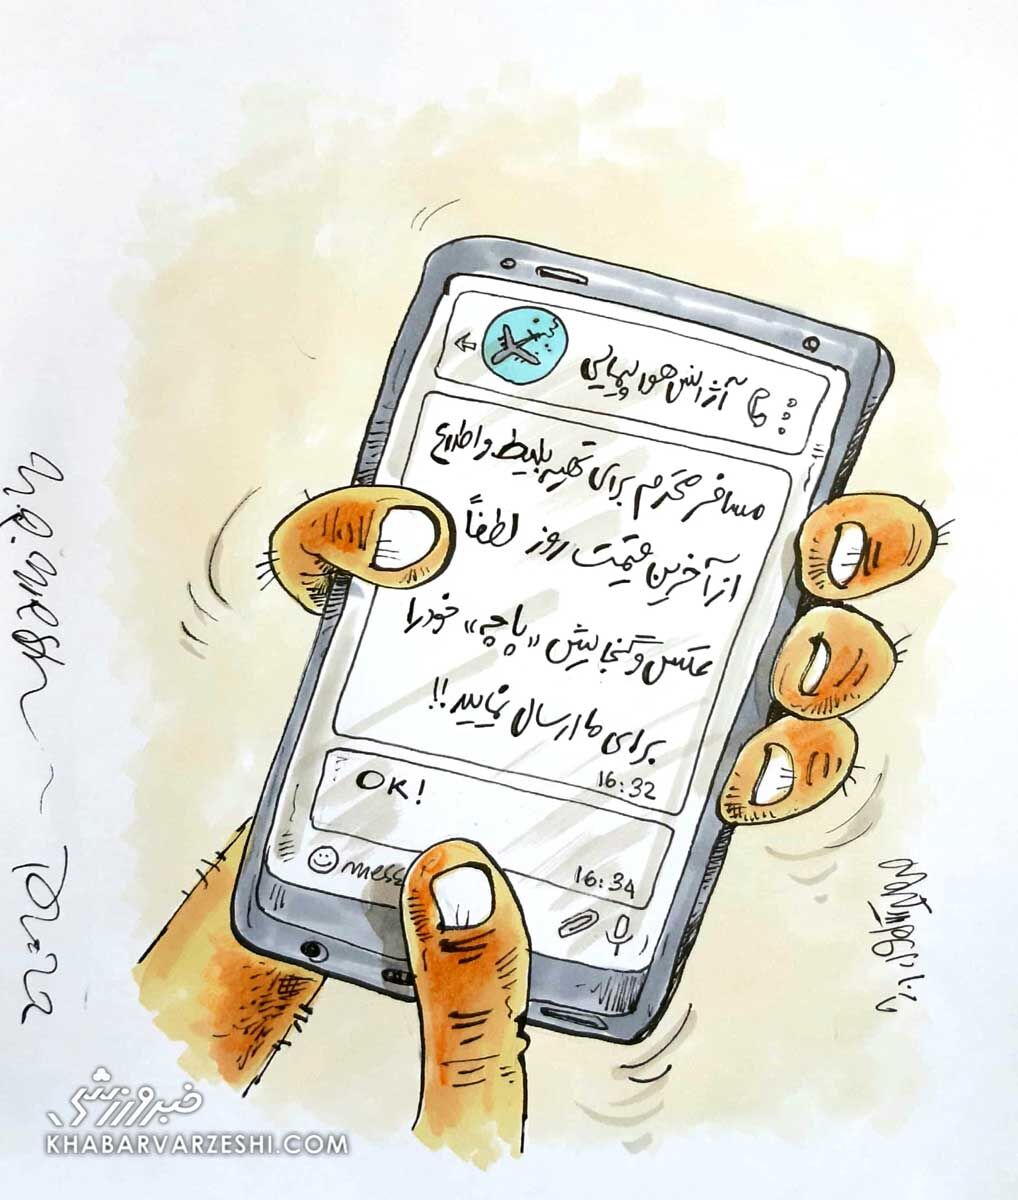 آژانس هواپیمایی
مسافر محترم برای تهیه بلیط و اطلاع
از آخرین قیمت روز لطفاً
عکس و گنجایش «پاچه» خود را
برای ما ارسال نمایید!!
16:32
OK!
16:34
mess
خبرورزشی
KHABARVARZESHI.COM